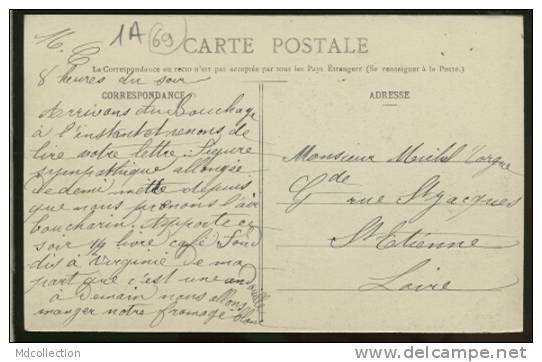 1A (69)
CARTE POSTALE
La Correspondance au recto n'est pas acceptée par tous les Pays Étrangers (Se renseigner à la Poste.)
CORRESPONDANCE
8 heures du soir
Arrivons du Bouchage
à l'instant et venons de
lire votre lettre. Figure
sympathique allongée
de demi mettre depuis
que nous prenons l'air
boucharin. Apporte ce
soir 1/4 livre café. Fond
dis à Virginie de ma
part que c'est une andouille
à demain nous allons
manger notre fromage blanc
ADRESSE
Monsieur
Gde rue St Jacques
St Etienne
Loire
Mdcollection
www.delcampe.net